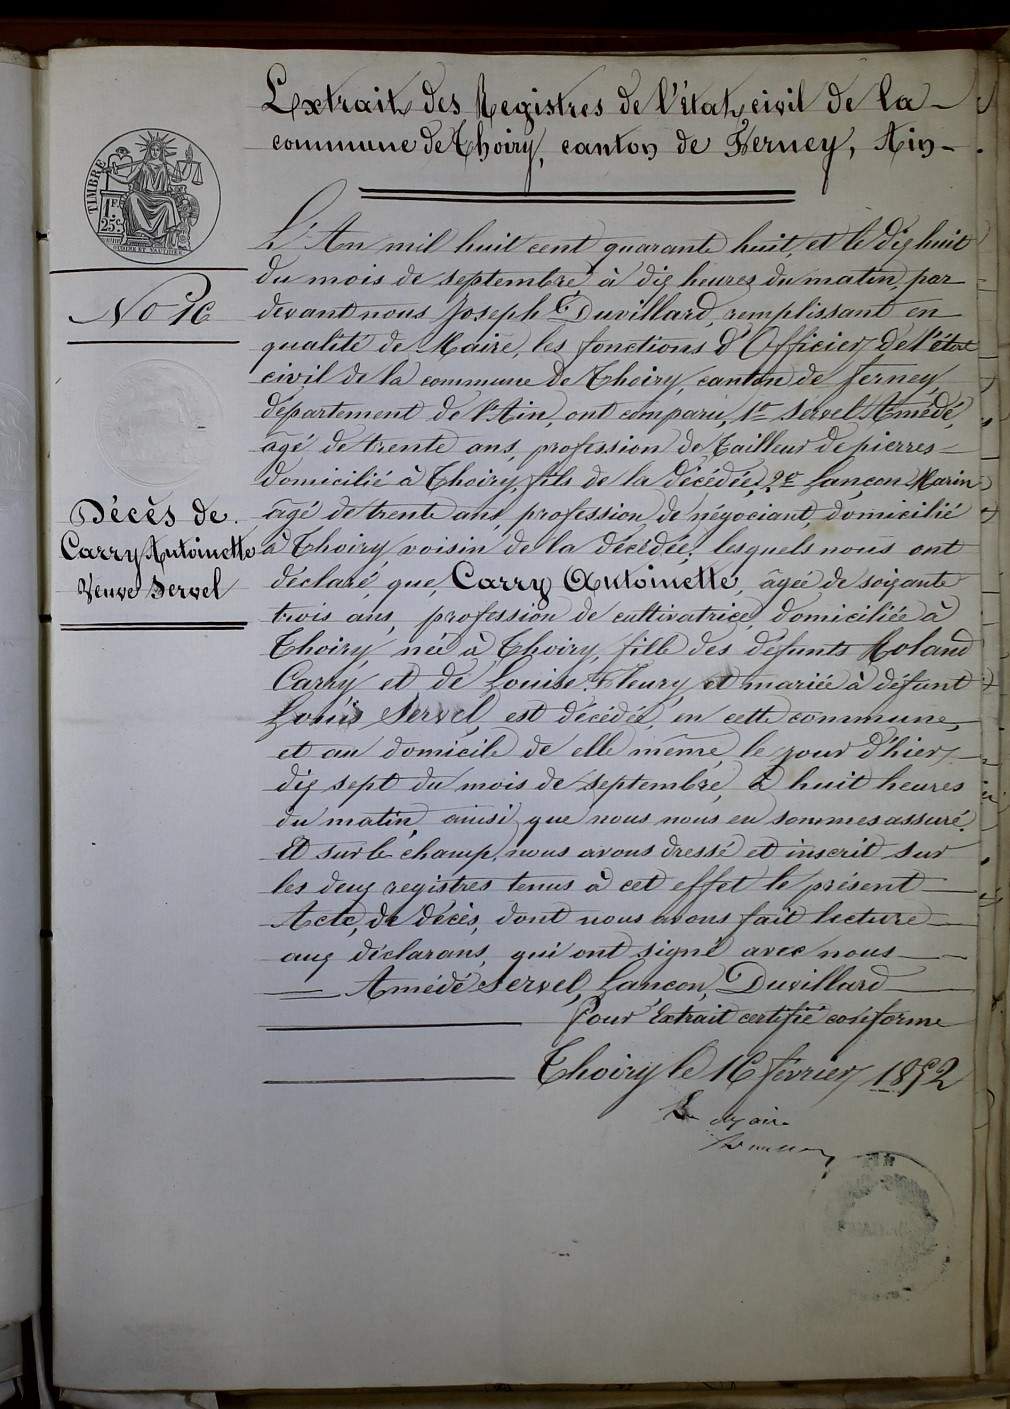 Extrait des Registres de l'état civil de la
commune de Thoiry, canton de Ferney, Ain.
TIMBRE
1F
25c
L'An mil huit cent quarante huit, et le dix huit
du mois de septembre, à dix heures du matin, par
No 16
devant nous Joseph Duvillard, remplissant en
qualité de Maire, les fonctions d'Officier de l'état
civil de la commune de Thoiry, canton de ferney,
département de l'Ain, ont comparu, 1er Servel Amédé,
agé de trente ans, profession de Tailleur de pierres
domicilié à Thoiry, fils de la décédée, 2e Lançon Marin
âgé de trente ans, profession de négociant, domicilié
à Thoiry, voisin de la décédée; lesquels nous ont
Décès de
Carry Antoinette
Veuve Servel
déclaré, que, Carry Antoinette, âgée de soixante
trois ans, profession de cultivatrice, domiciliée à
Thoiry, née à Thoiry, fille des défunts Roland
Carry et de Louise Fleury, et mariée à défunt
Louis Servel, est décédée, en cette commune,
et au domicile de elle même, le jour d'hier
dix sept du mois de septembre, à huit heures
du matin, ainsi que nous nous en sommes assuré.
Et sur le champ, nous avons dressé et inscrit sur
les deux registres tenus à cet effet le présent
Acte, de décès, dont nous avons fait lecture
aux déclarans, qui ont signé avec nous
Amédé Servel, Lancon, Duvillard
Pour Extrait certifié conforme
Thoiry le 16 février 1852
Le Maire